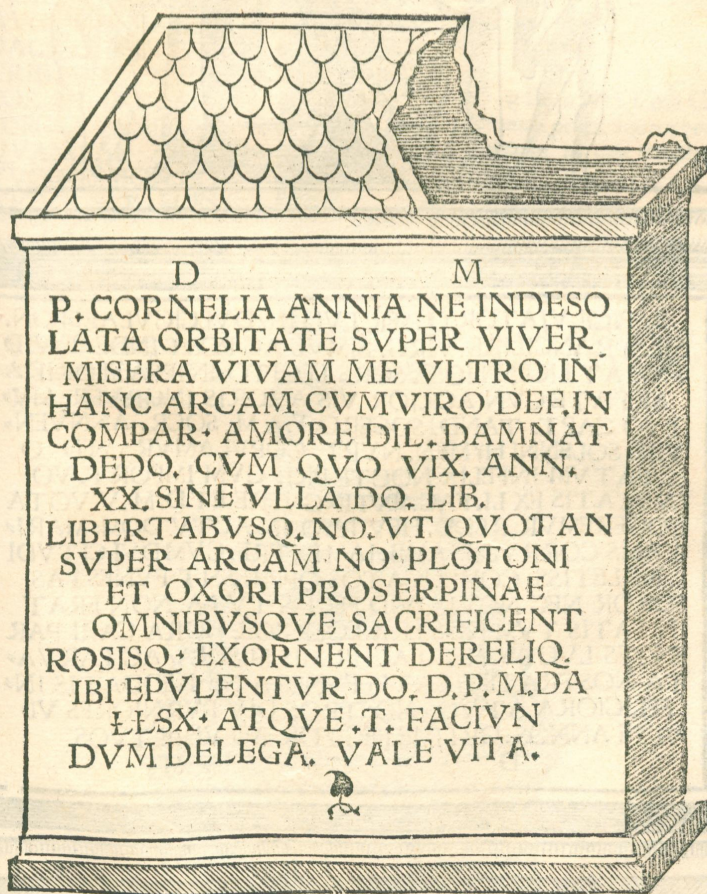 D M
P. CORNELIA ANNIA NE INDESO
LATA ORBITATE SVPER VIVER
MISERA VIVAM ME VLTRO IN
HANC ARCAM CVM VIRO DEF. IN
COMPAR· AMORE DIL. DAMNAT
DEDO. CVM QVO VIX. ANN.
XX. SINE VLLA DO. LIB.
LIBERTABVSQ. NO. VT QVOTAN
SVPER ARCAM NO· PLOTONI
ET OXORI PROSERPINAE
OMNIBVSQVE SACRIFICENT
ROSISQ· EXORNENT DERELIQ.
IBI EPVLENTVR DO. D. P. M. DA
ŁŁSX· ATQVE .T. FACIVN
DVM DELEGA. VALE VITA.